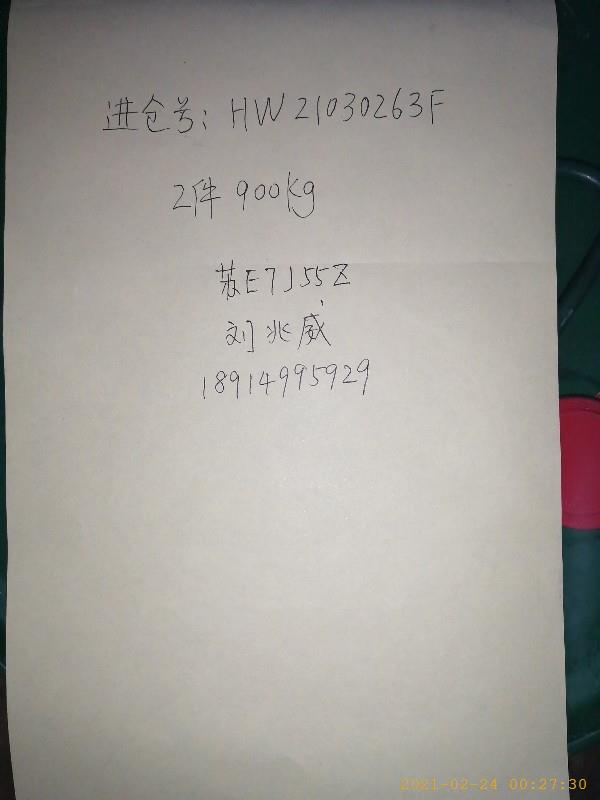 进仓号: HW21030263F
2件 900kg
苏E7J55Z
刘兆威
18914995929
2021-02-24 00:27:30